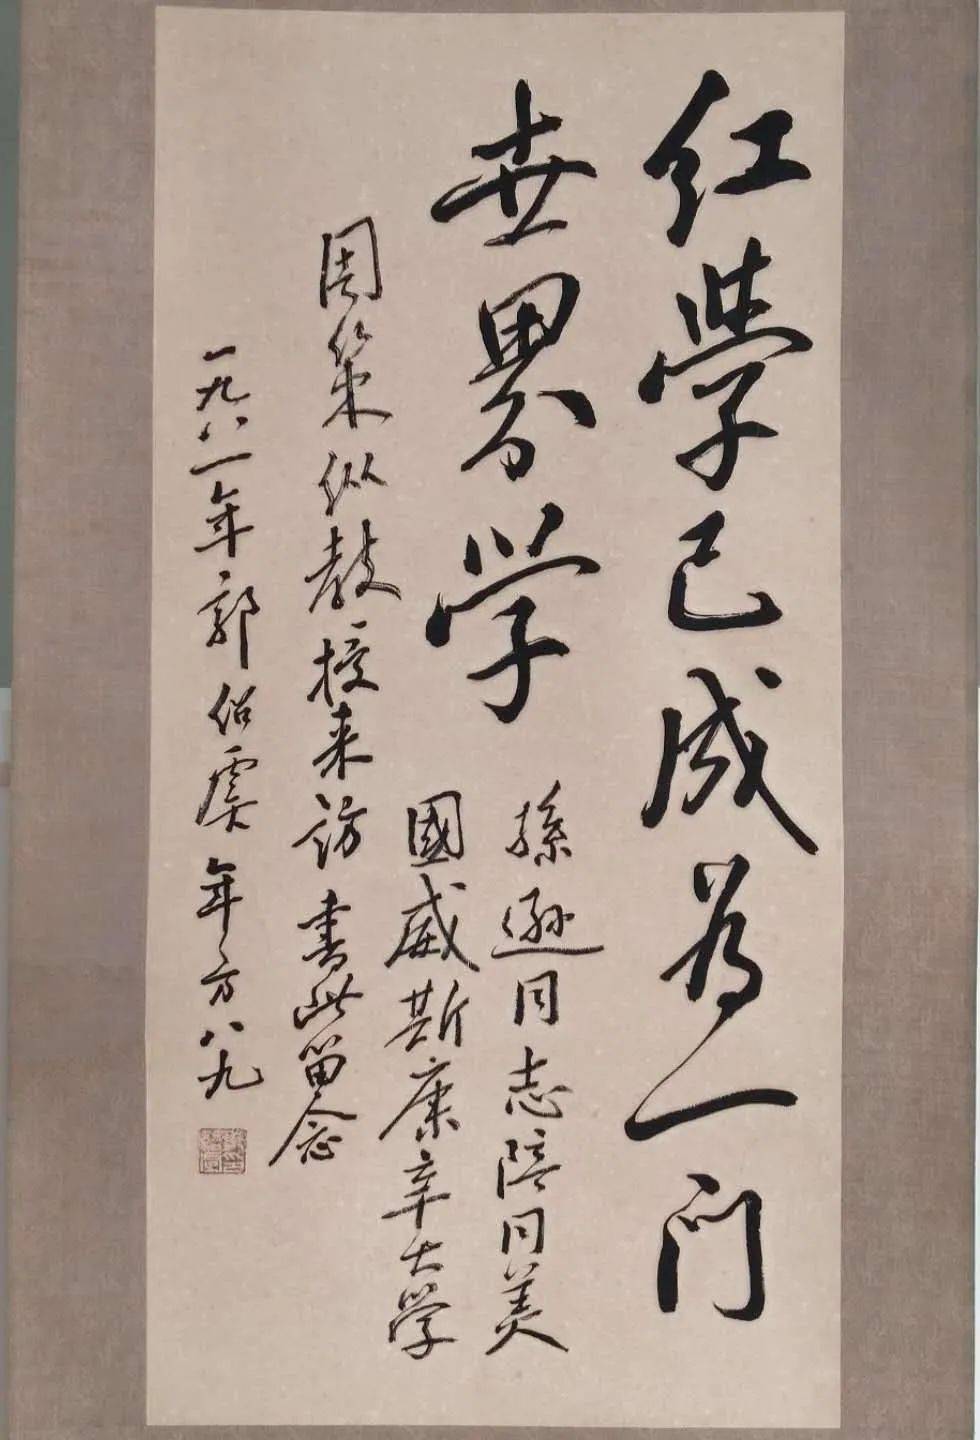 红學已成为一门
世界学
孫遜同志陪同美
國威斯康辛大学
周策纵教授来访书此留念
一九八一年郭绍虞年方八九